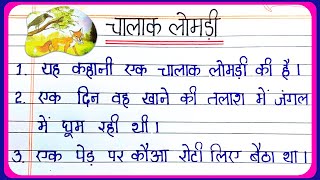 चालाक लोमड़ी
1. यह कहानी एक चालाक लोमड़ी की है।
2. एक दिन वह खाने की तलाश में जंगल
में घूम रही थी।
3. एक पेड़ पर कौआ रोटी लिए बैठा था।